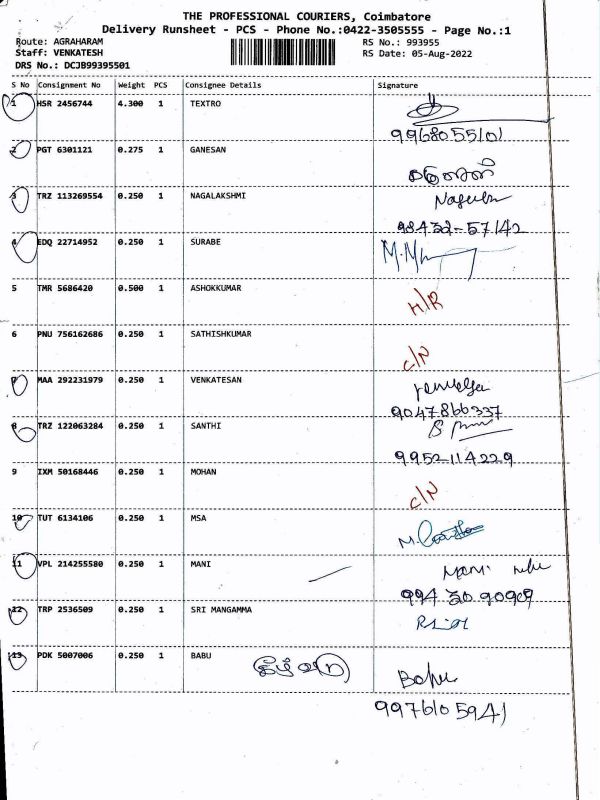 THE PROFESSIONAL COURIERS, Coimbatore
Delivery Runsheet - PCS - Phone No.:0422-3505555 - Page No.:1
Route: AGRAHARAM RS No.: 993955
Staff: VENKATESH RS Date: 05-Aug-2022
DRS No.: DCJB99395501
S No Consignment No Weight PCS Consignee Details Signature
1 HSR 2456744 4.300 1 TEXTRO
9968055101
2 PGT 6301121 0.275 1 GANESAN
3 TRZ 113269554 0.250 1 NAGALAKSHMI
98432-57142
4 EDQ 22714952 0.250 1 SURABE
5 TMR 5686420 0.500 1 ASHOKKUMAR H/R
6 PNU 756162686 0.250 1 SATHISHKUMAR C/N
7 MAA 292231979 0.250 1 VENKATESAN
9047866337
8 TRZ 122063284 0.250 1 SANTHI
9952114229
9 IXM 50168446 0.250 1 MOHAN C/N
10 TUT 6134106 0.250 1 MSA
11 VPL 214255580 0.250 1 MANI Mani
994 30 90909
12 TRP 2536509 0.250 1 SRI MANGAMMA
13 PDK 5007006 0.250 1 BABU Babu
9976105941